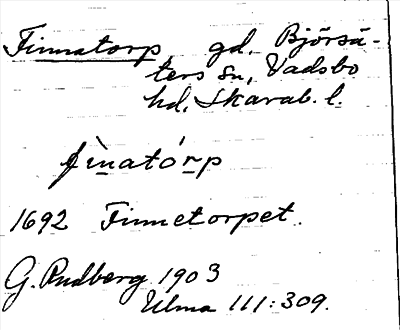 Finnatorp, gd. Björsä-
ters sn, Vadsbo
hd, Skarab. l.
fìnatórp
1692 Finnetorpet.
G. Rudberg 1903
Ulma 111:309.